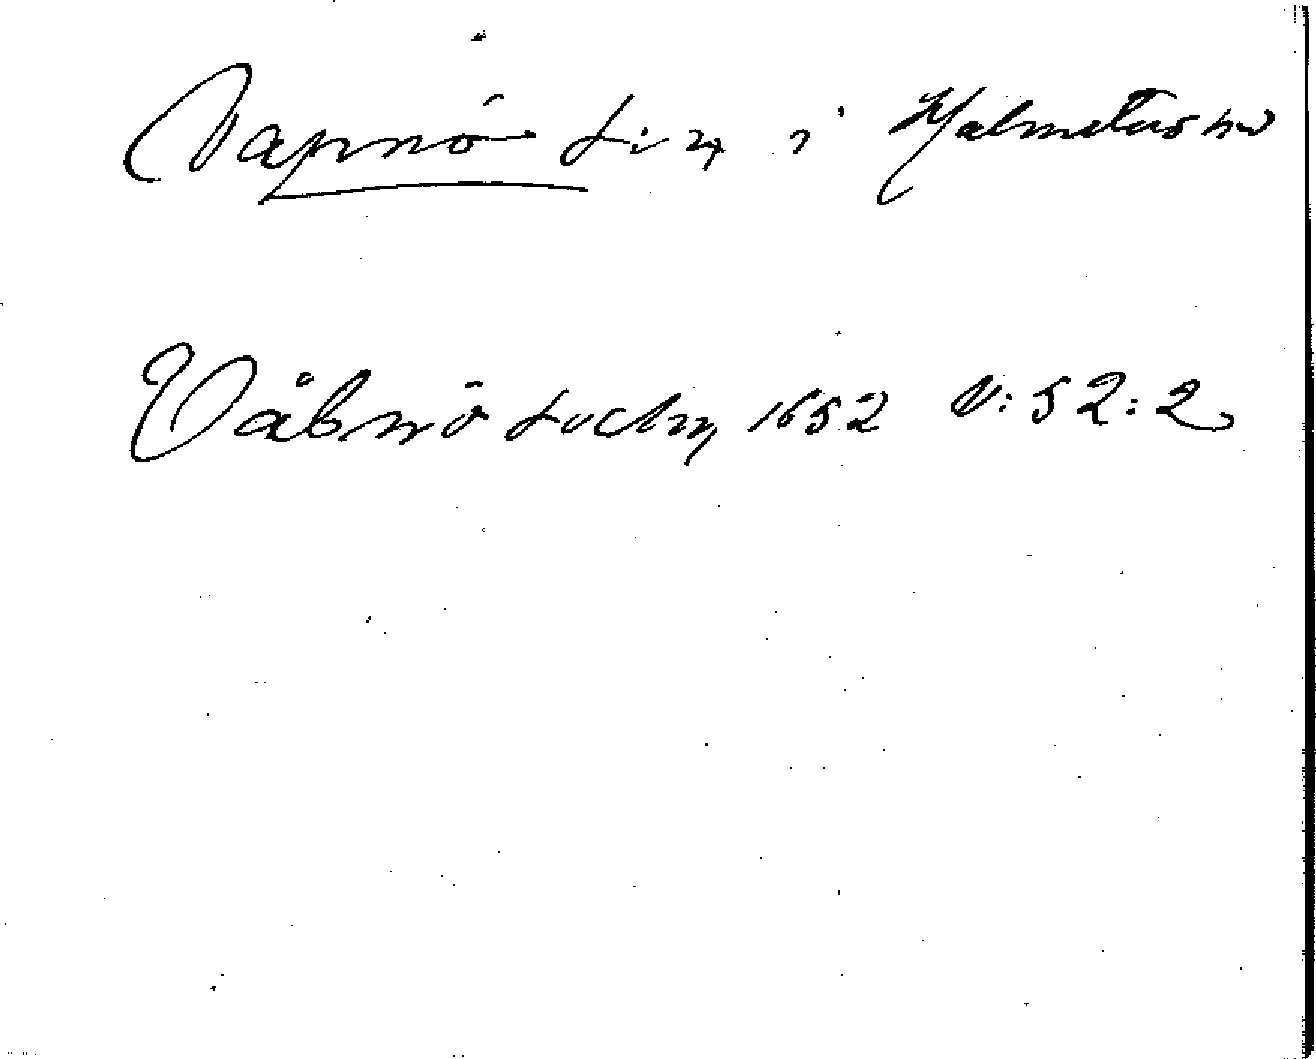 Vapnö sn i Halmstads hd
Våbnö sochn 1652 V:52:2